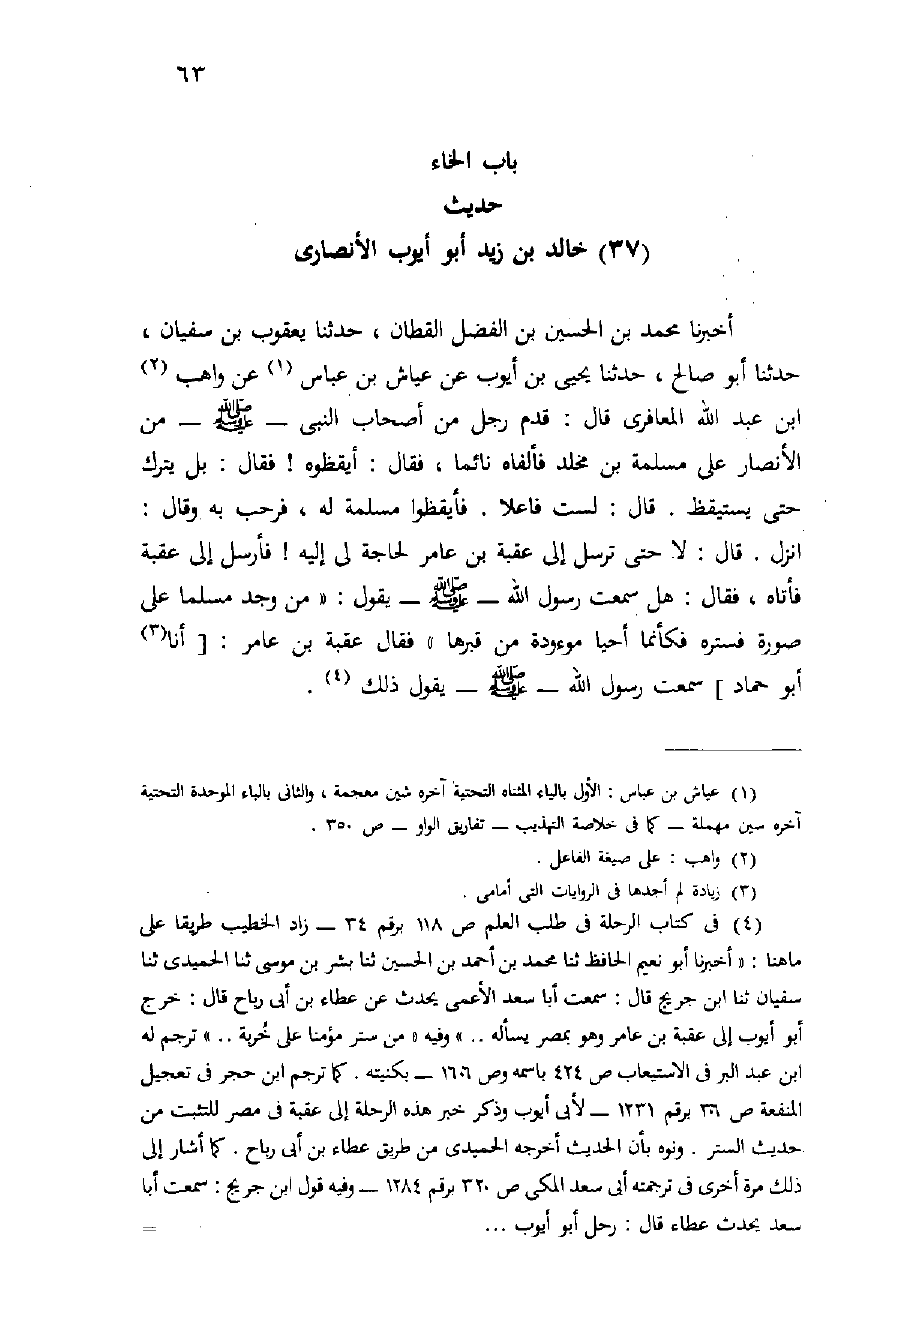 ٦٣
باب الخاء
حديث
(٣٧) خالد بن زيد أبو أيوب الأنصارى
أخبرنا محمد بن الحسين بن الفضل القطان ، حدثنا يعقوب بن سفيان ،
حدثنا أبو صالح ، حدثنا يحيى بن أيوب عن عياش بن عباس (١) عن واهب (٢)
ابن عبد الله المعافرى قال : قدم رجل من أصحاب النبى — ﷺ — من
الأنصار على مسلمة بن مخلد فألفاه نائما ، فقال : أيقظوه ! فقال : بل يترك
حتى يستيقظ . قال : لست فاعلا . فأيقظوا مسلمة له ، فرحب به وقال :
انزل . قال : لا حتى ترسل إلى عقبة بن عامر لحاجة لى إليه ! فأرسل إلى عقبة
فأتاه ، فقال : هل سمعت رسول الله — ﷺ — يقول : « من وجد مسلما على
صورة فستره فكأنما أحيا موءودة من قبرها » فقال عقبة بن عامر : [ أنا(٣)
أبو حماد ] سمعت رسول الله — ﷺ — يقول ذلك (٤) .
(١) عياش بن عباس : الأول بالياء المثناه التحتية آخره شين معجمة ، والثانى بالباء الموحدة التحتية
آخره سين مهملة — كما فى خلاصة التهذيب — تفاريق الواو — ص ٣٥٠ .
(٢) واهب : على صيغة الفاعل .
(٣) زيادة لم أجدها فى الروايات التى أمامى .
(٤) فى كتاب الرحلة فى طلب العلم ص ١١٨ برقم ٣٤ — زاد الخطيب طريقا على
ماهنا : « أخبرنا أبو نعيم الحافظ ثنا محمد بن أحمد بن الحسين ثنا بشر بن موسى ثنا الحميدى ثنا
سفيان ثنا ابن جريج قال : سمعت أبا سعد الأعمى يحدث عن عطاء بن أبى رباح قال : خرج
أبو أيوب إلى عقبة بن عامر وهو بمصر يسأله .. » وفيه « من ستر مؤمنا على خُربة .. » ترجم له
ابن عبد البر فى الاستيعاب ص ٤٢٤ باسمه وص ١٦٠٦ — بكنيته . كما ترجم ابن حجر فى تعجيل
المنفعة ص ٣٠٦ برقم ١٢٣١ — لأبى أيوب وذكر خبر هذه الرحلة إلى عقبة فى مصر للتثبت من
حديث الستر . ونوه بأن الحديث أخرجه الحميدى من طريق عطاء بن أبى رباح . كما أشار إلى
ذلك مرة أخرى فى ترجمته أبى سعد المكى ص ٣٢٠ برقم ١٢٨٤ — وفيه قول ابن جريج : سمعت أبا
سعد يحدث عطاء قال : رحل أبو أيوب ... =